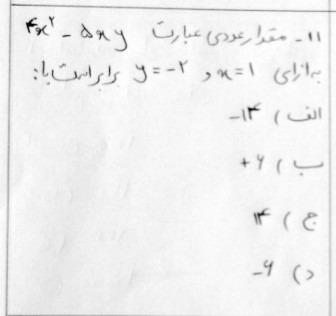 ۱۱- مقدار عددی عبارت ۴x² - ۵xy
به ازای x=۱ و y=-۲ برابر است با:
الف) ۱۴-
ب) ۶+
ج) ۱۴
د) ۶-